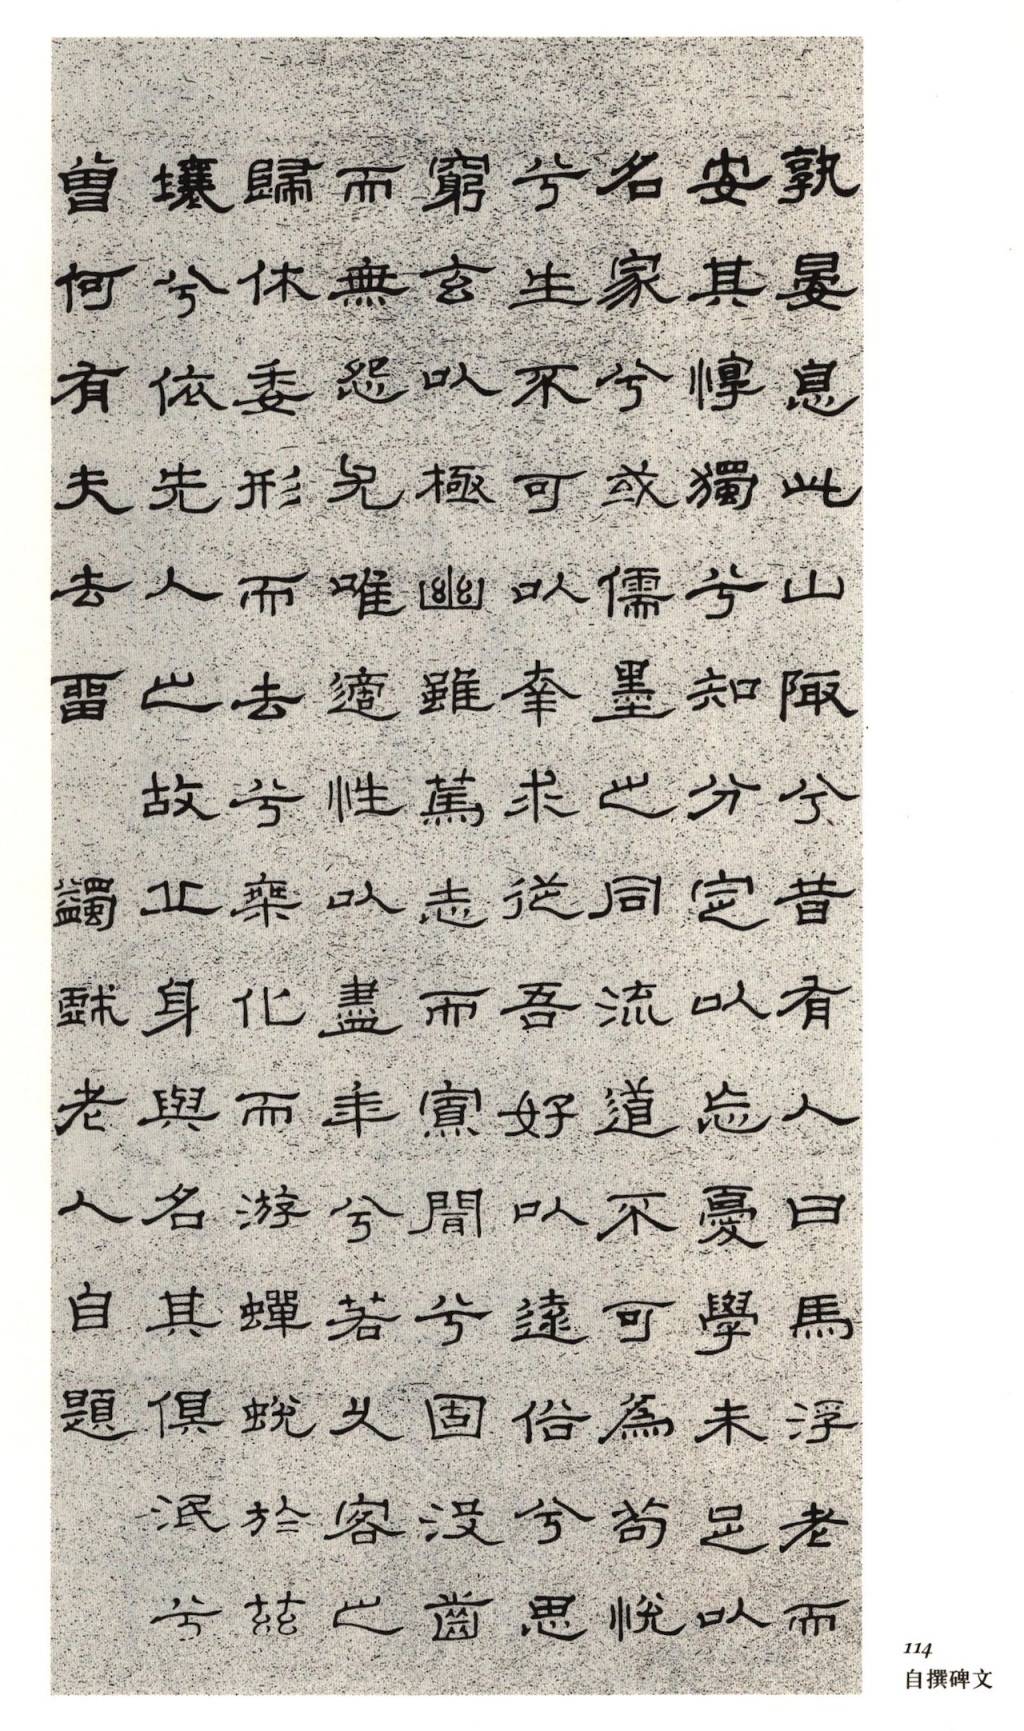 孰晏息此山陬兮昔有人曰馬浮老而
安其惸獨兮知分定以忘憂學未足以
名家兮或儒墨之同流道不可為苟悅
兮生不可以幸求從吾好以遠俗兮思
窮玄以極幽雖篤志而寡聞兮固沒齒
而無怨尤唯適性以盡年兮若久客之
歸休委形而去兮乘化而游蟬蛻於茲
壤兮依先人之故丘身與名其俱泯兮
曾何有夫去留 蠲戲老人自題
114
自撰碑文